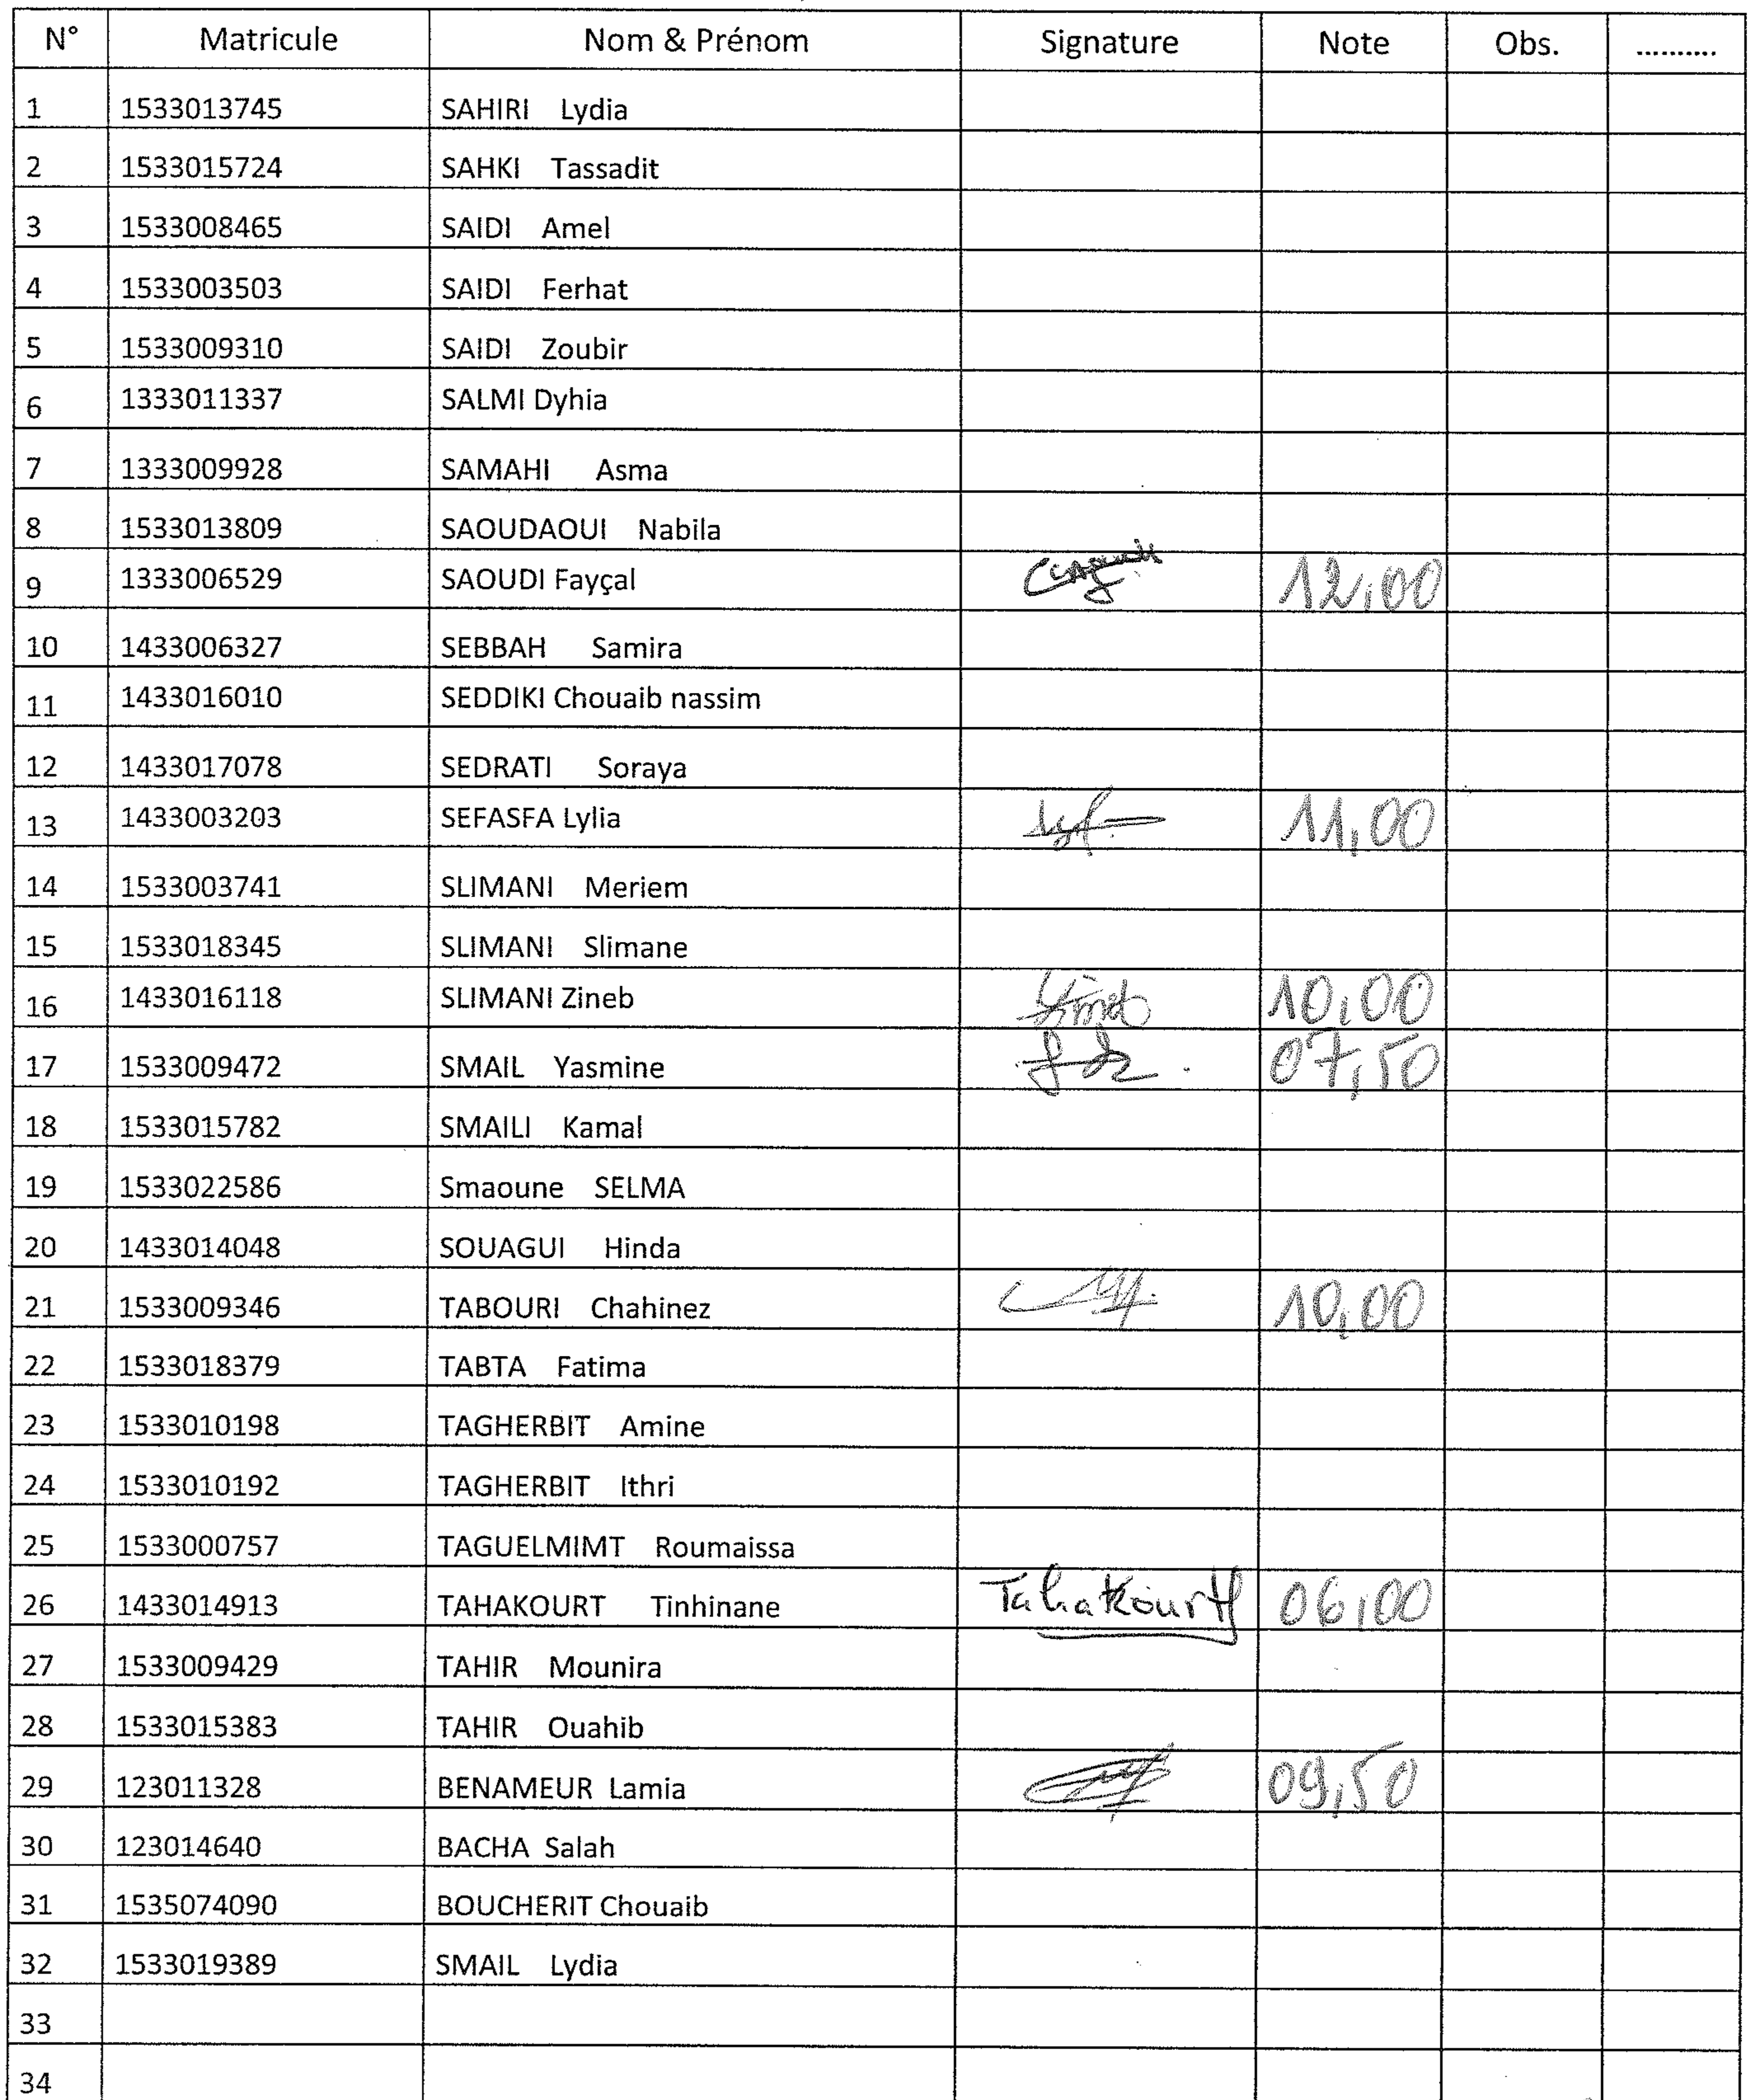 N° Matricule Nom & Prénom Signature Note Obs. ..........
1 1533013745 SAHIRI Lydia
2 1533015724 SAHKI Tassadit
3 1533008465 SAIDI Amel
4 1533003503 SAIDI Ferhat
5 1533009310 SAIDI Zoubir
6 1333011337 SALMI Dyhia
7 1333009928 SAMAHI Asma
8 1533013809 SAOUDAOUI Nabila
9 1333006529 SAOUDI Fayçal 12,00
10 1433006327 SEBBAH Samira
11 1433016010 SEDDIKI Chouaib nassim
12 1433017078 SEDRATI Soraya
13 1433003203 SEFASFA Lylia 11,00
14 1533003741 SLIMANI Meriem
15 1533018345 SLIMANI Slimane
16 1433016118 SLIMANI Zineb 10,00
17 1533009472 SMAIL Yasmine 07,50
18 1533015782 SMAILI Kamal
19 1533022586 Smaoune SELMA
20 1433014048 SOUAGUI Hinda
21 1533009346 TABOURI Chahinez 10,00
22 1533018379 TABTA Fatima
23 1533010198 TAGHERBIT Amine
24 1533010192 TAGHERBIT Ithri
25 1533000757 TAGUELMIMT Roumaissa
26 1433014913 TAHAKOURT Tinhinane Tahakourt 06,00
27 1533009429 TAHIR Mounira
28 1533015383 TAHIR Ouahib
29 123011328 BENAMEUR Lamia 09,50
30 123014640 BACHA Salah
31 1535074090 BOUCHERIT Chouaib
32 1533019389 SMAIL Lydia
33
34